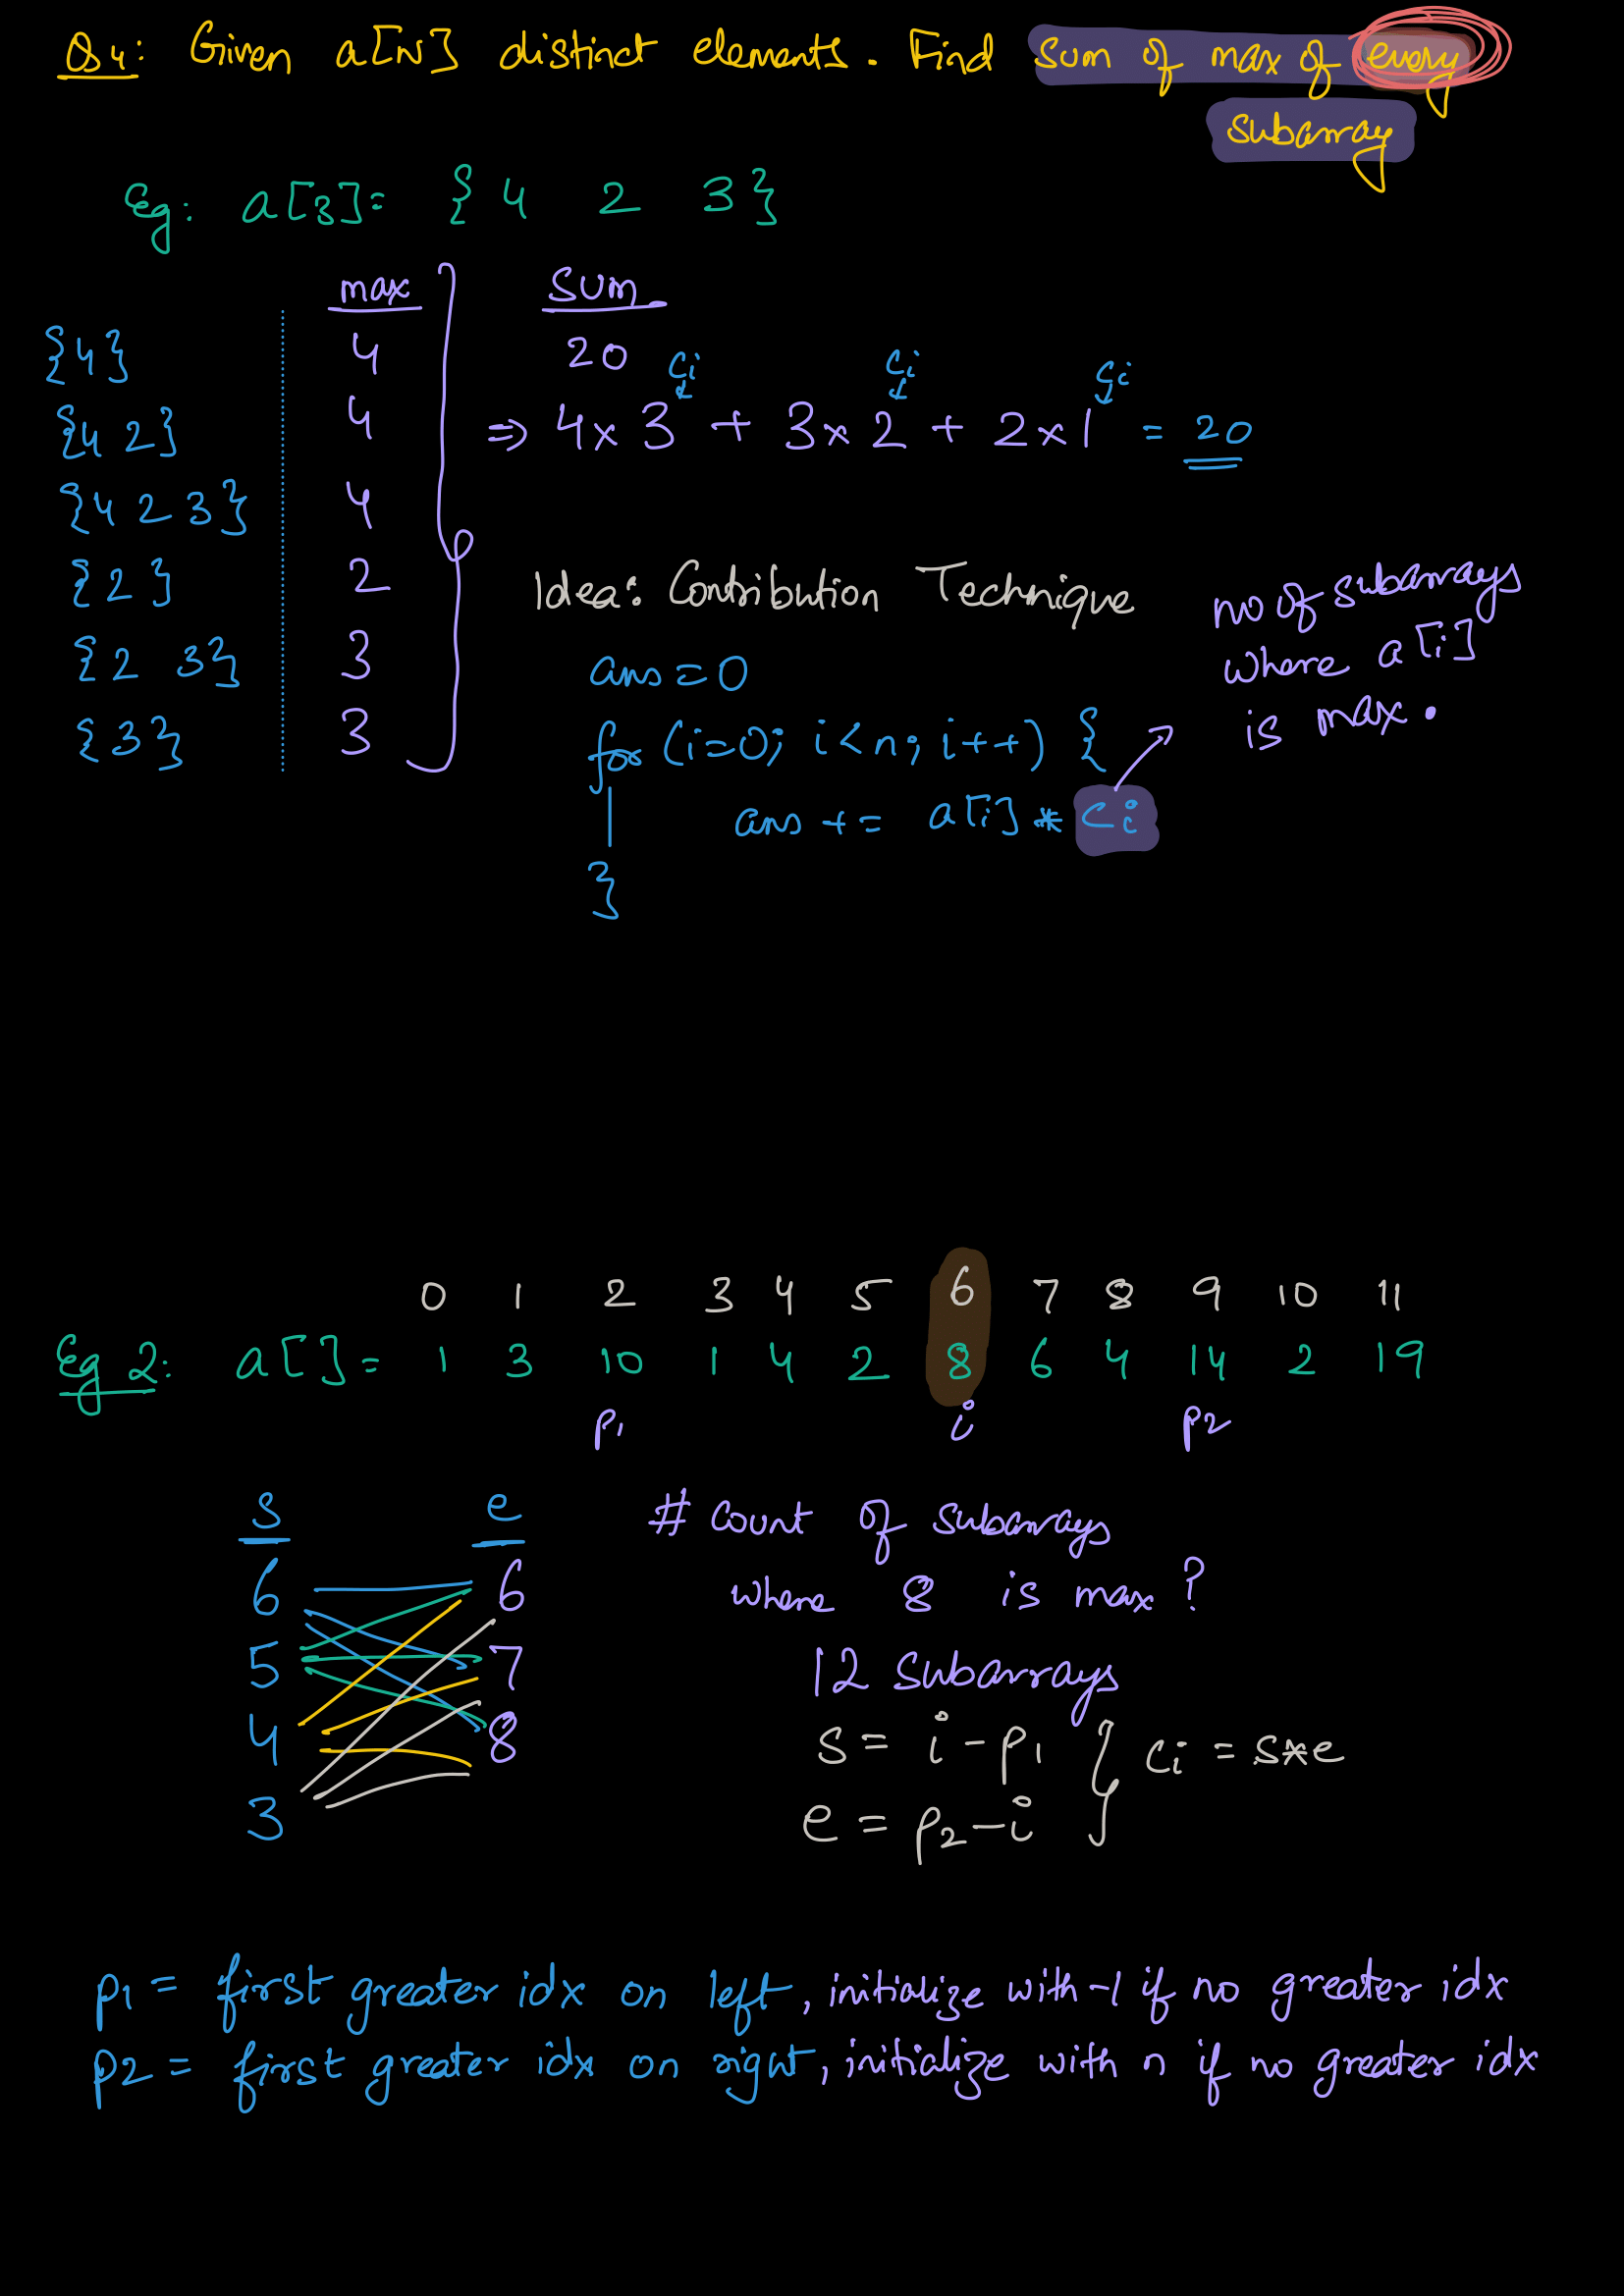 Q4: Given a[N] distinct elements. Find sum of max of every
subarray
Eg: a[3]= { 4 2 3 }
max
sum
{4} 4
20
{4 2} 4
Ci Ci Ci
⇒ 4x 3 + 3x 2 + 2x1 = 20
{4 2 3} 4
{2} 2
{2 3} 3
{3} 3
Idea: Contribution Technique
no of subarrays
where a[i]
is max.
ans = 0
for (i=0; i<n; i++) {
ans += a[i] * Ci
}
0 1 2 3 4 5 6 7 8 9 10 11
Eg 2: a[]= 1 3 10 1 4 2 8 6 4 14 2 19
p1 i p2
s e
6 6
5 7
4 8
3
# count of subarrays
where 8 is max?
12 subarrays
s = i - p1
e = p2 - i
} Ci = s*e
p1 = first greater idx on left, initialize with -1 if no greater idx
p2 = first greater idx on right, initialize with n if no greater idx